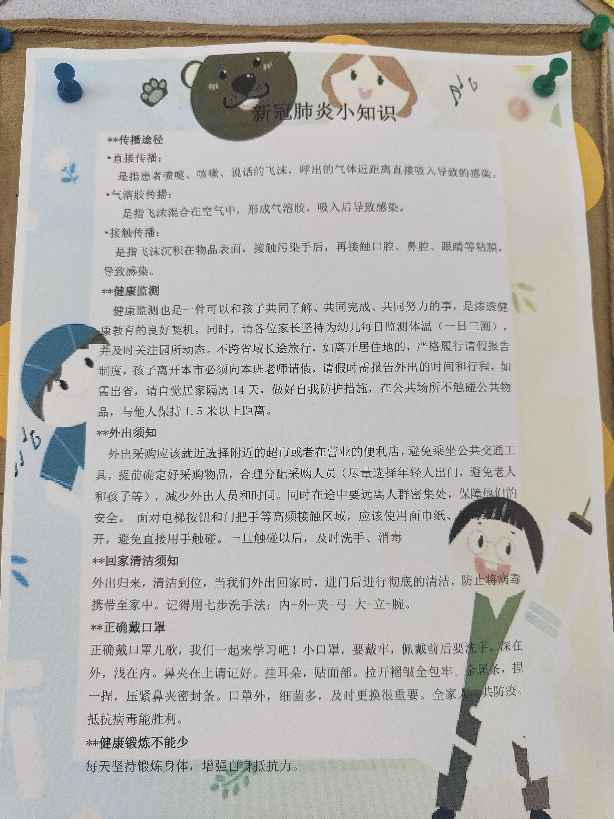 新冠肺炎小知识
**传播途径
•直接传播:
是指患者喷嚏、咳嗽、说话的飞沫，呼出的气体近距离直接吸入导致的感染。
•气溶胶传播:
是指飞沫混合在空气中，形成气溶胶，吸入后导致感染。
•接触传播:
是指飞沫沉积在物品表面，接触污染手后，再接触口腔、鼻腔、眼睛等粘膜，
导致感染。
**健康监测
健康监测也是一件可以和孩子共同了解、共同完成、共同努力的事，是渗透健
康教育的良好契机，同时，请各位家长坚持为幼儿每日监测体温（一日三测），
并及时关注园所动态。不跨省域长途旅行，如离开居住地的，严格履行请假报告
制度，孩子离开本市必须向本班老师请假，请假时需报告外出的时间和行程，如
需出省，请自觉居家隔离 14 天，做好自我防护措施，在公共场所不触碰公共物
品，与他人保持 1.5 米以上距离。
**外出须知
外出采购应该就近选择附近的超市或者在营业的便利店，避免乘坐公共交通工
具，提前确定好采购物品，合理分配采购人员（尽量选择年轻人出门，避免老人
和孩子等），减少外出人员和时间。同时在途中要远离人群密集处，保障他们的
安全。 面对电梯按钮和门把手等高频接触区域，应该使用面巾纸、
开，避免直接用手触碰。一旦触碰以后，及时洗手、消毒
**回家清洁须知
外出归来，清洁到位，当我们外出回家时，进门后进行彻底的清洁，防止将病毒
携带至家中。记得用七步洗手法：内-外-夹-弓-大-立-腕。
**正确戴口罩
正确戴口罩儿歌，我们一起来学习吧！小口罩，要戴牢，佩戴前后要洗手。深在
外，浅在内。鼻夹在上请记好。挂耳朵，贴面部。拉开褶皱全包牢。金属条，捏
一捏，压紧鼻夹密封条。口罩外，细菌多，及时更换很重要。全家人 共防疫。
抵抗病毒能胜利。
**健康锻炼不能少
每天坚持锻炼身体，增强自身抵抗力。